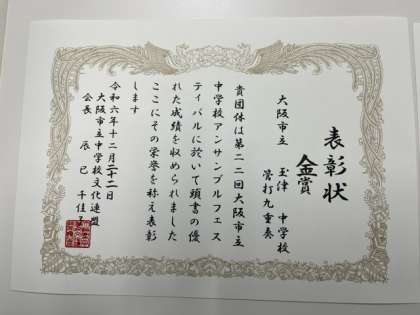 表彰状
金賞
大阪市立 玉津 中学校
管打九重奏
貴団体は第二二回大阪市立
中学校アンサンブルフェス
ティバルに於いて頭書の優
れた成績を収められました
ここにその栄誉を称え表彰
します
令和六年十二月二十二日
大阪市立中学校文化連盟
会長 辰巳 千佳